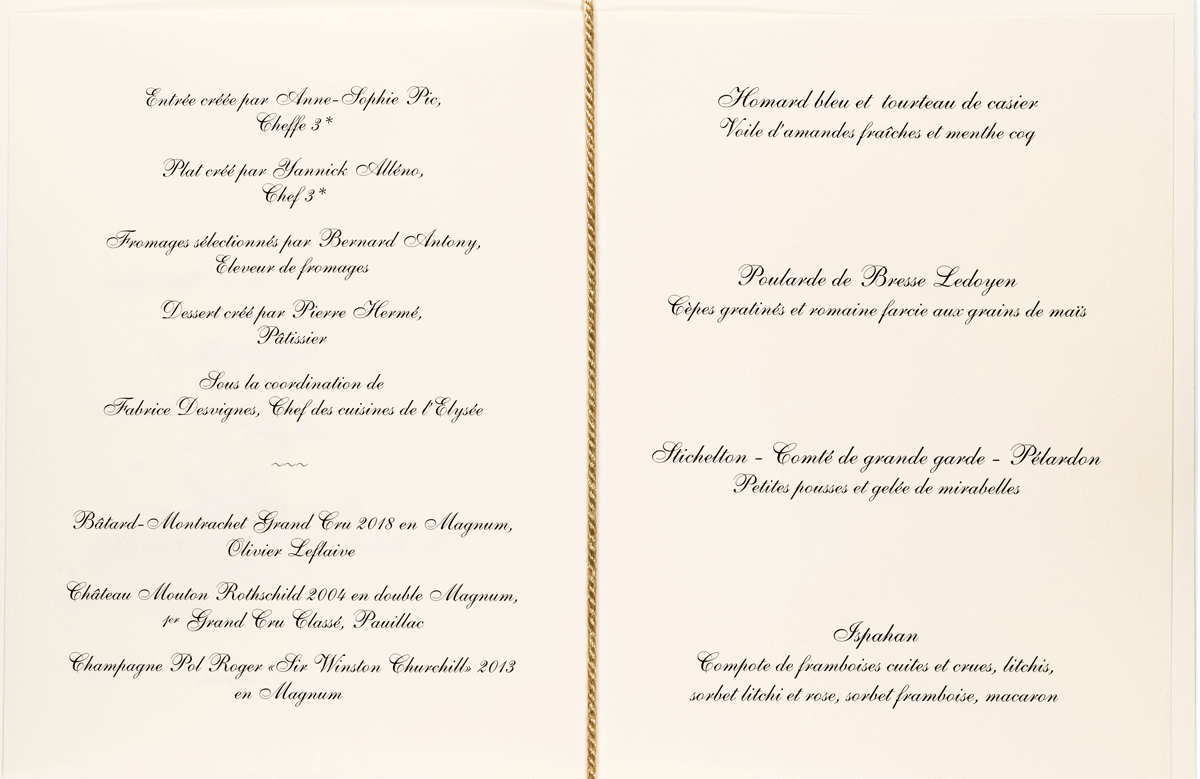 Entrée créée par Anne-Sophie Pic,
Cheffe 3*
Plat créé par Yannick Alléno,
Chef 3*
Fromages sélectionnés par Bernard Antony,
Eleveur de fromages
Dessert créé par Pierre Hermé,
Pâtissier
Sous la coordination de
Fabrice Desvignes, Chef des cuisines de l'Elysée
~~~
Bâtard-Montrachet Grand Cru 2018 en Magnum,
Olivier Leflaive
Château Mouton Rothschild 2004 en double Magnum,
1er Grand Cru Classé, Pauillac
Champagne Pol Roger «Sir Winston Churchill» 2013
en Magnum
Homard bleu et tourteau de casier
Voile d'amandes fraîches et menthe coq
Poularde de Bresse Ledoyen
Cèpes gratinés et romaine farcie aux grains de maïs
Stichelton - Comté de grande garde - Pélardon
Petites pousses et gelée de mirabelles
Ispahan
Compote de framboises cuites et crues, litchis,
sorbet litchi et rose, sorbet framboise, macaron